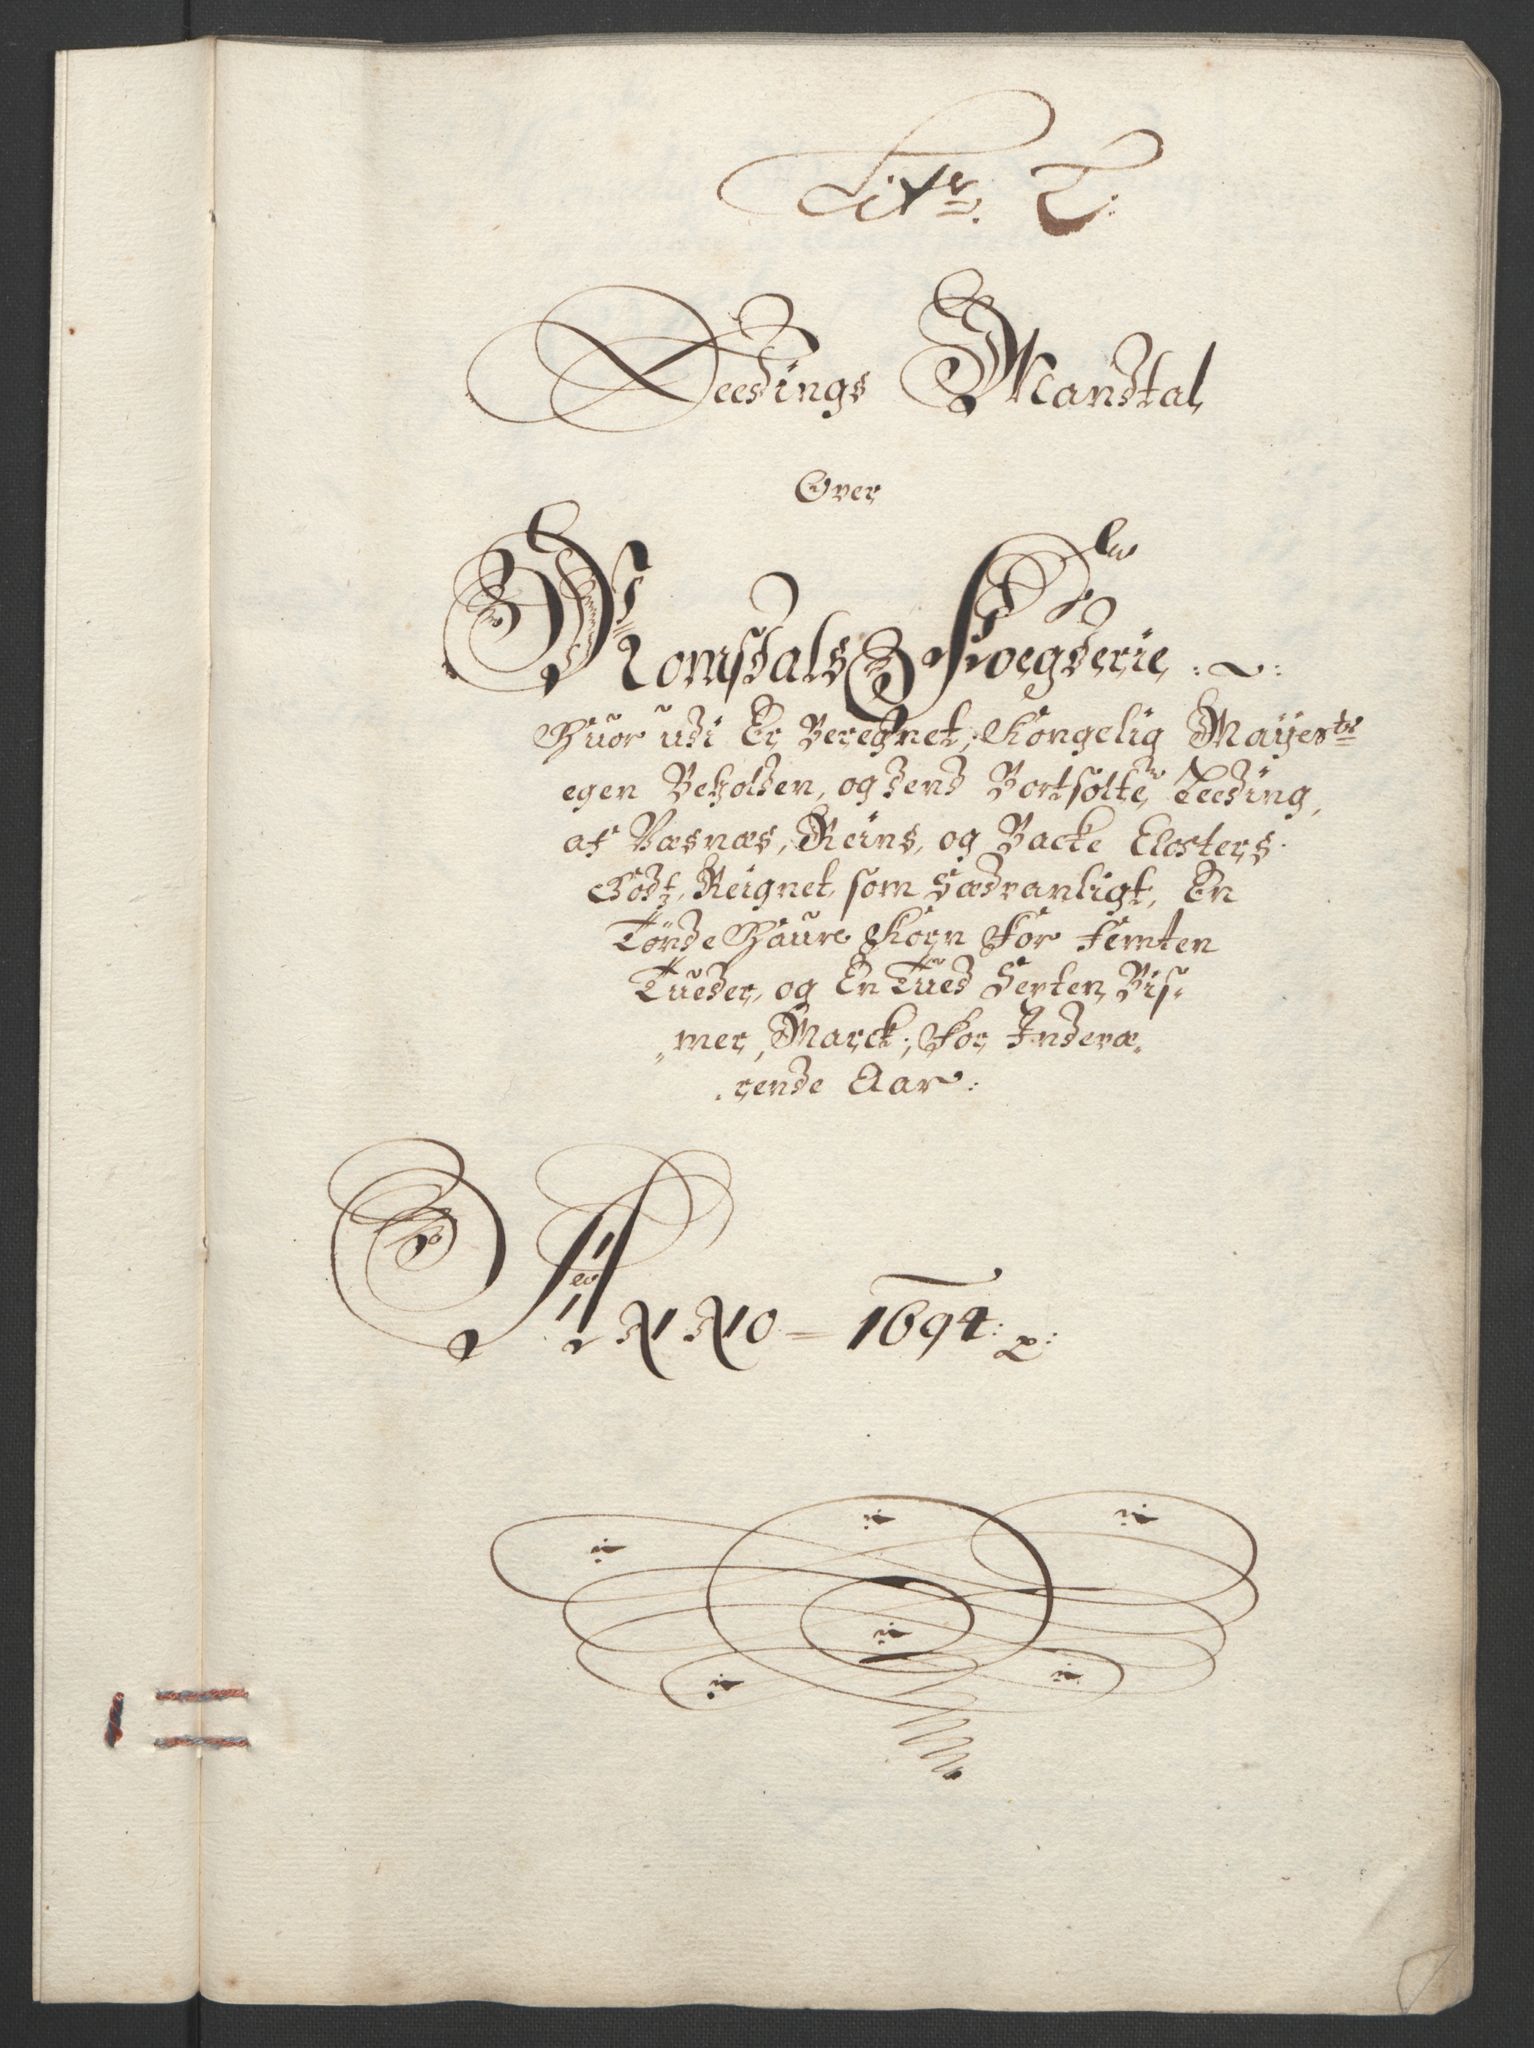 Litr. T:
Leedings Mandtal
Over
Romsdals Foegderie
Huor udi Er Beregnet, Kongelig Mayestr
egen Beholden, og dend Bortsolte Leeding,
af Væsnæs, Reins, og Backe Closters
Godtz, Reignet som Sædvanligt, En
Tönde Haure Korn For Femten
Tueder, og En Tued Serten Bis-
mer, Marck; For Indevæ
rende Aar:
ANNO 1694: